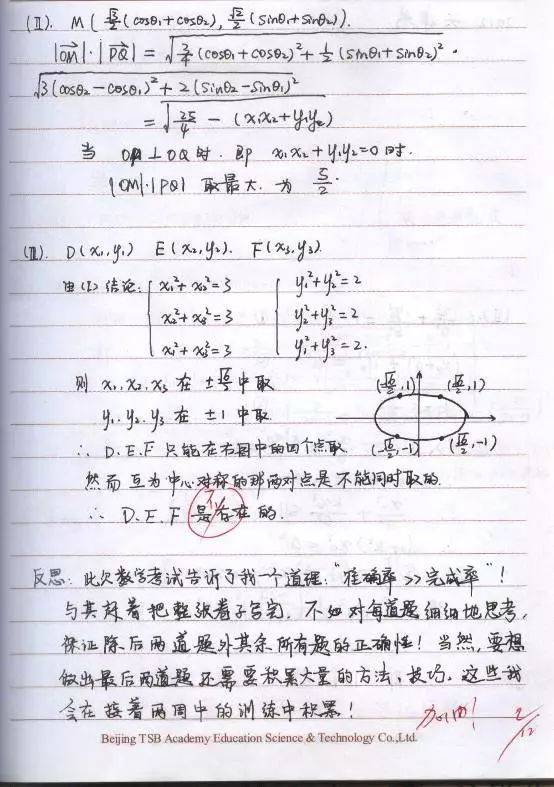 (II). M(√6/2(cosθ₁+cosθ₂), √2/2(sinθ₁+sinθ₂)).
|OM|·|PQ| = √(3/4(cosθ₁+cosθ₂)²+1/2(sinθ₁+sinθ₂)²) ·
√(3(cosθ₂-cosθ₁)²+2(sinθ₂-sinθ₁)²)
= √(25/4 - (x₁x₂+y₁y₂)
当 OP⊥OQ时. 即 x₁x₂+y₁y₂=0时.
|OM|·|PQ| 取最大. 为 5/2.
(III). D(x₁,y₁) E(x₂,y₂). F(x₃,y₃).
由(I)结论: x₁²+x₂²=3 y₁²+y₂²=2
x₂²+x₃²=3 y₂²+y₃²=2
x₁²+x₃²=3 y₁²+y₃²=2.
则 x₁.x₂.x₃ 在 ±√6/2 中取
y₁.y₂.y₃ 在 ±1 中取
(-√6/2,1) (√6/2,1)
∴ D.E.F 只能在右图中的四个点取
(-√6/2,-1) (√6/2,-1)
然而 互为中心对称的那两对点是不能同时取的.
∴ D.E.F 是不存在的.
反思: 此次数学考试告诉了我一个道理: "准确率>>完成率"!
与其赶着把整张卷子写完, 不如对每道题细细地思考,
保证除后两道题外其余所有题的正确性! 当然, 要想
做出最后两道题还需要积累大量的方法、技巧. 这些我
会在接着两周中的训练中积累!
加油! 2/12
Beijing TSB Academy Education Science & Technology Co.,Ltd.